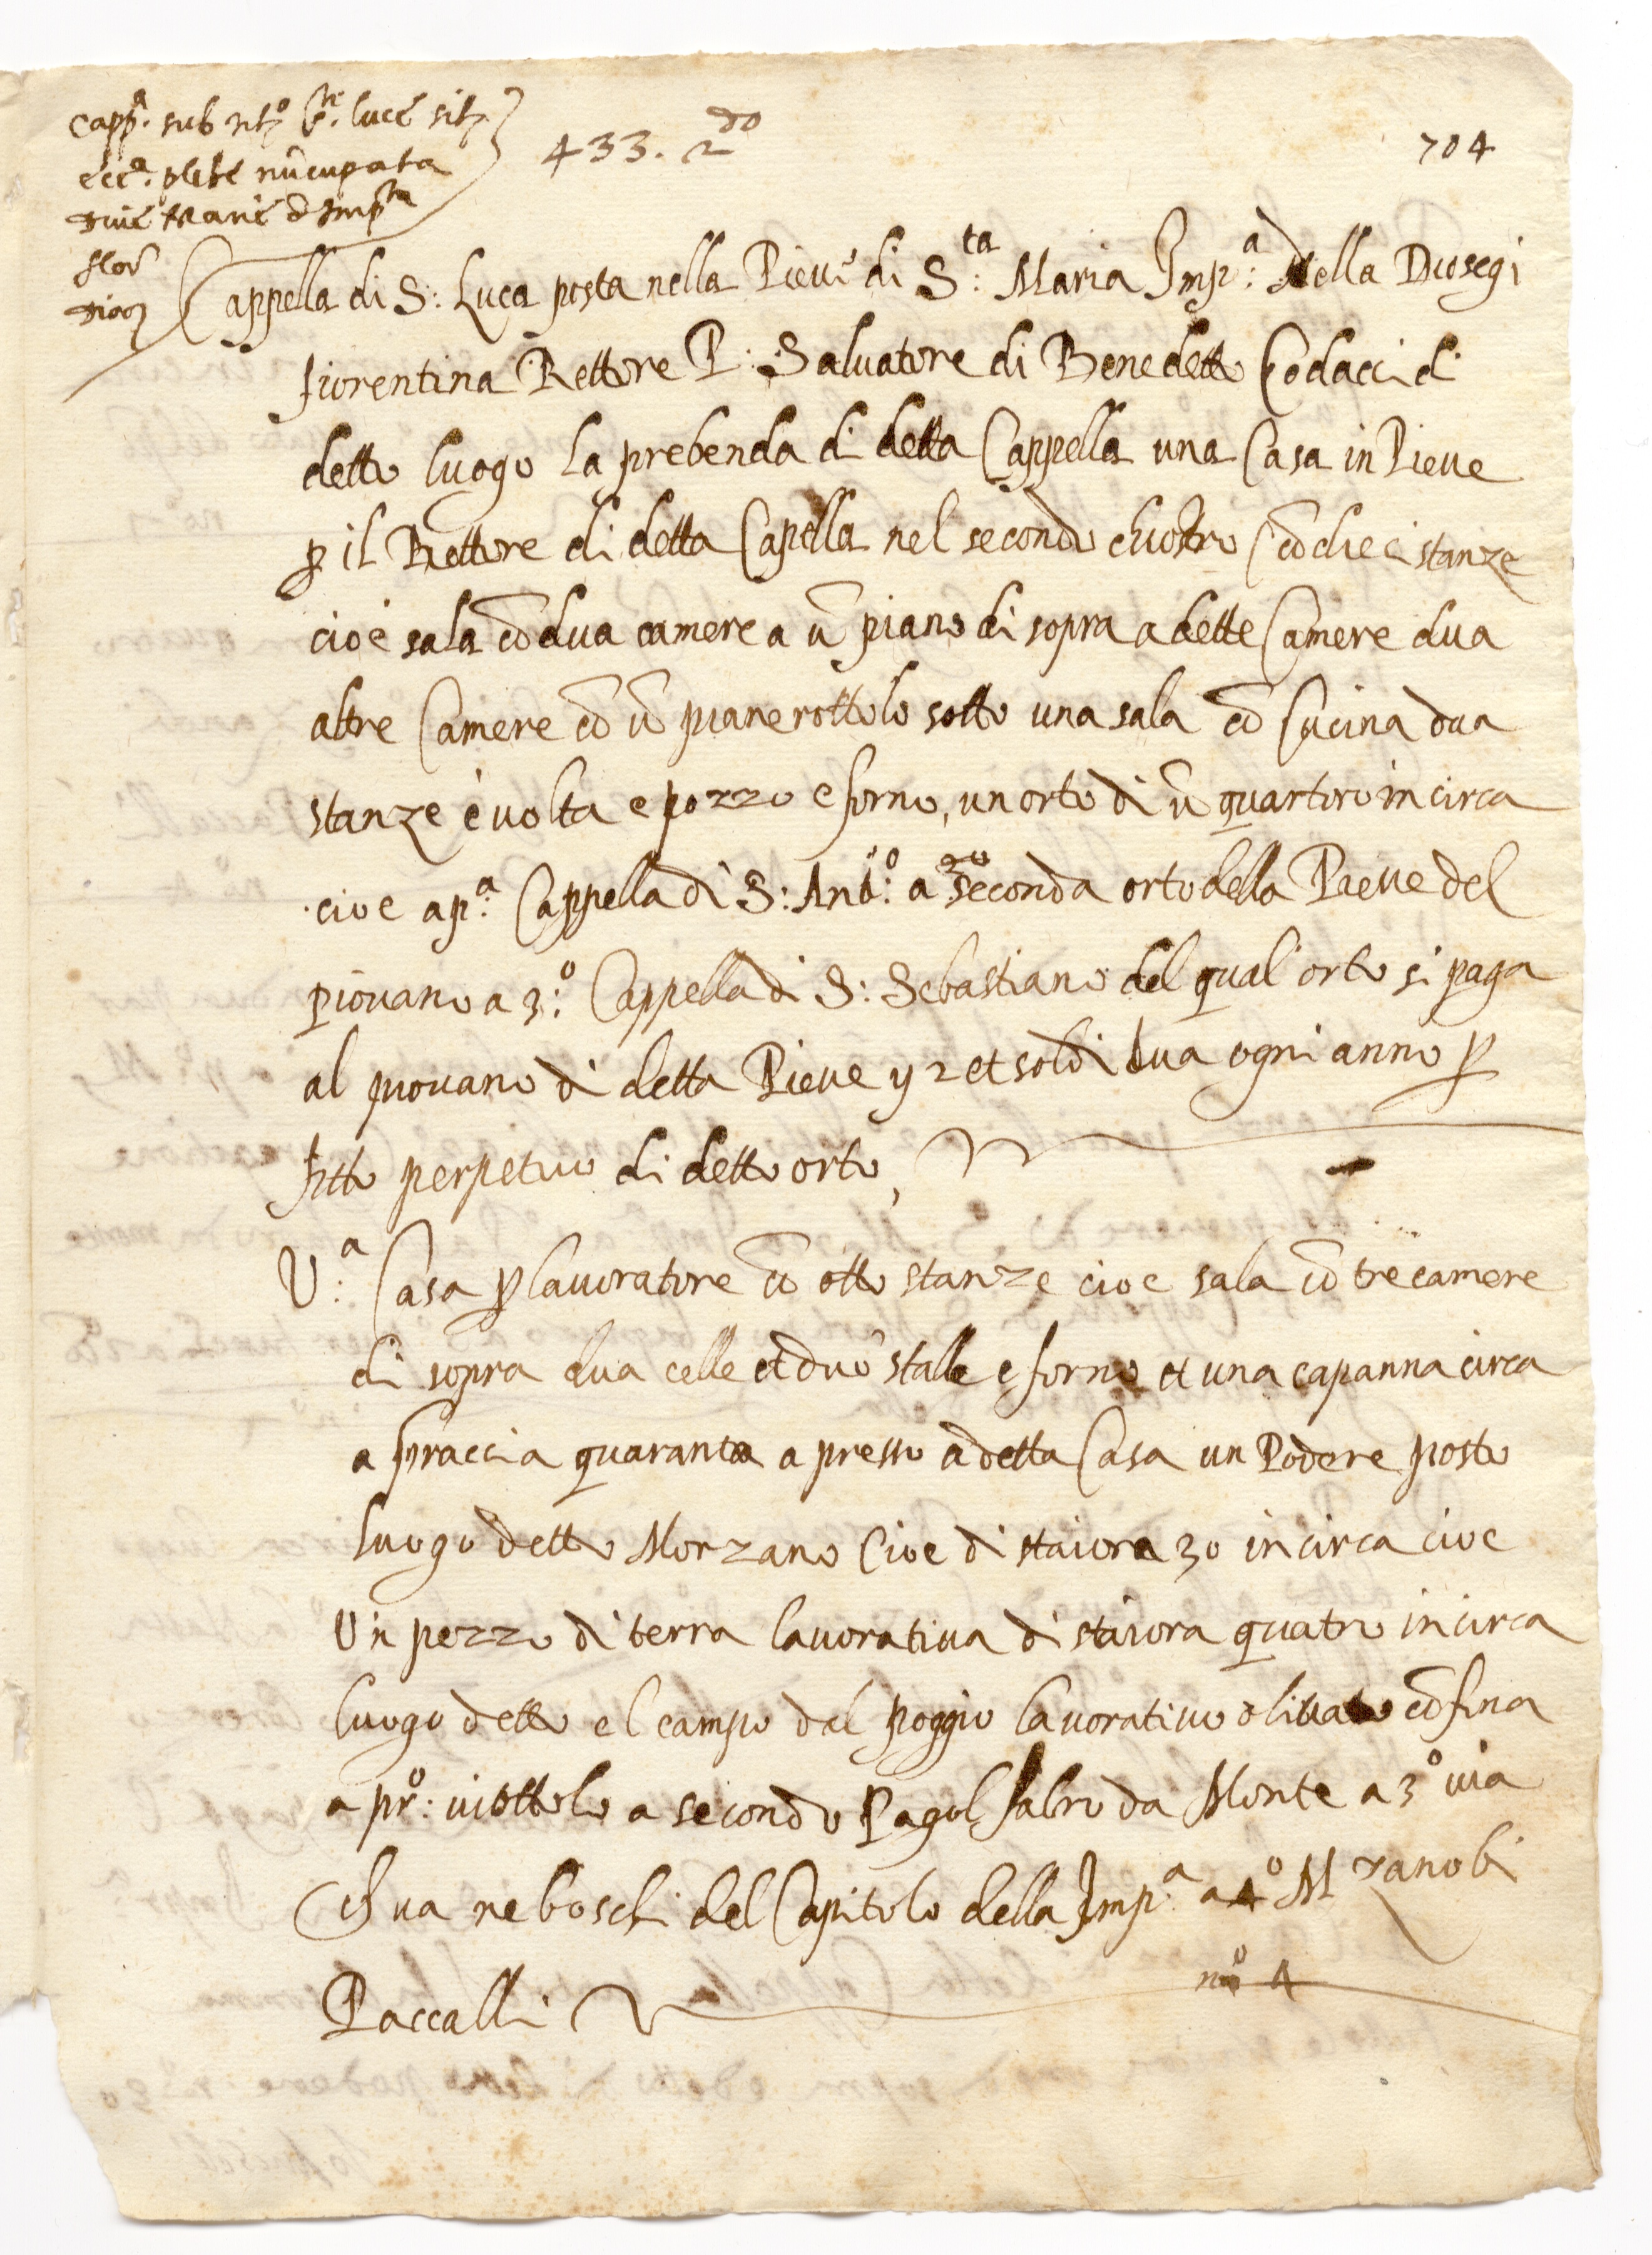 Capp.a sub tit.o S.ti luce sit.
ecc.a plebe nūcupata
Diue Marie d Imp.ta
flor
Dioc
433. 2do
704
Cappella di S: Luca posta nella Pieue di S:ta Maria Imp:a della Diosegi
fiorentina Rettore P: Saluatore di Benedetto Codacci di
detto luogo La prebenda di detta Cappella una Casa in Pieue
p il Rettore di detta Capella nel secondo chiostro Cō dieci stanze
cioè sala cō dua camere a ū piano di sopra a dette Camere dua
altre Camere cō ū pianerottolo sotto una sala cō Cucina dua
stanze è uolta e pozzo e forno, un orto di ū quartoro in circa
cioe a p:a Cappella di S: Ant:o a seconda orto della Pieue del
piouano a 3:o Cappella di S: Sebastiano del qual orto si paga
al piouano di detta Pieue y 2 et soldi dua ogni anno p
fitto perpetuo di detto orto,
U:a Casa p lauoratore cō otto stanze cioe sala cō tre camere
di sopra dua celle et due stalle e forno et una capanna circa
a braccia quaranta a presso a detta Casa un Podere posto
luogo detto Morzano Cioe di staiora 30 in circa cioe
Un pezzo di terra lauoratiua di staiora quatro in circa
luogo detto el campo del poggio lauoratiuo oliuato cōfina
a pr:o uiottolo a secondo Pagol fabro da Monte a 3o uia
Ch ua ne boschi del Capitolo della Imp:a a 4o M zanobi
Paccalli
no 4